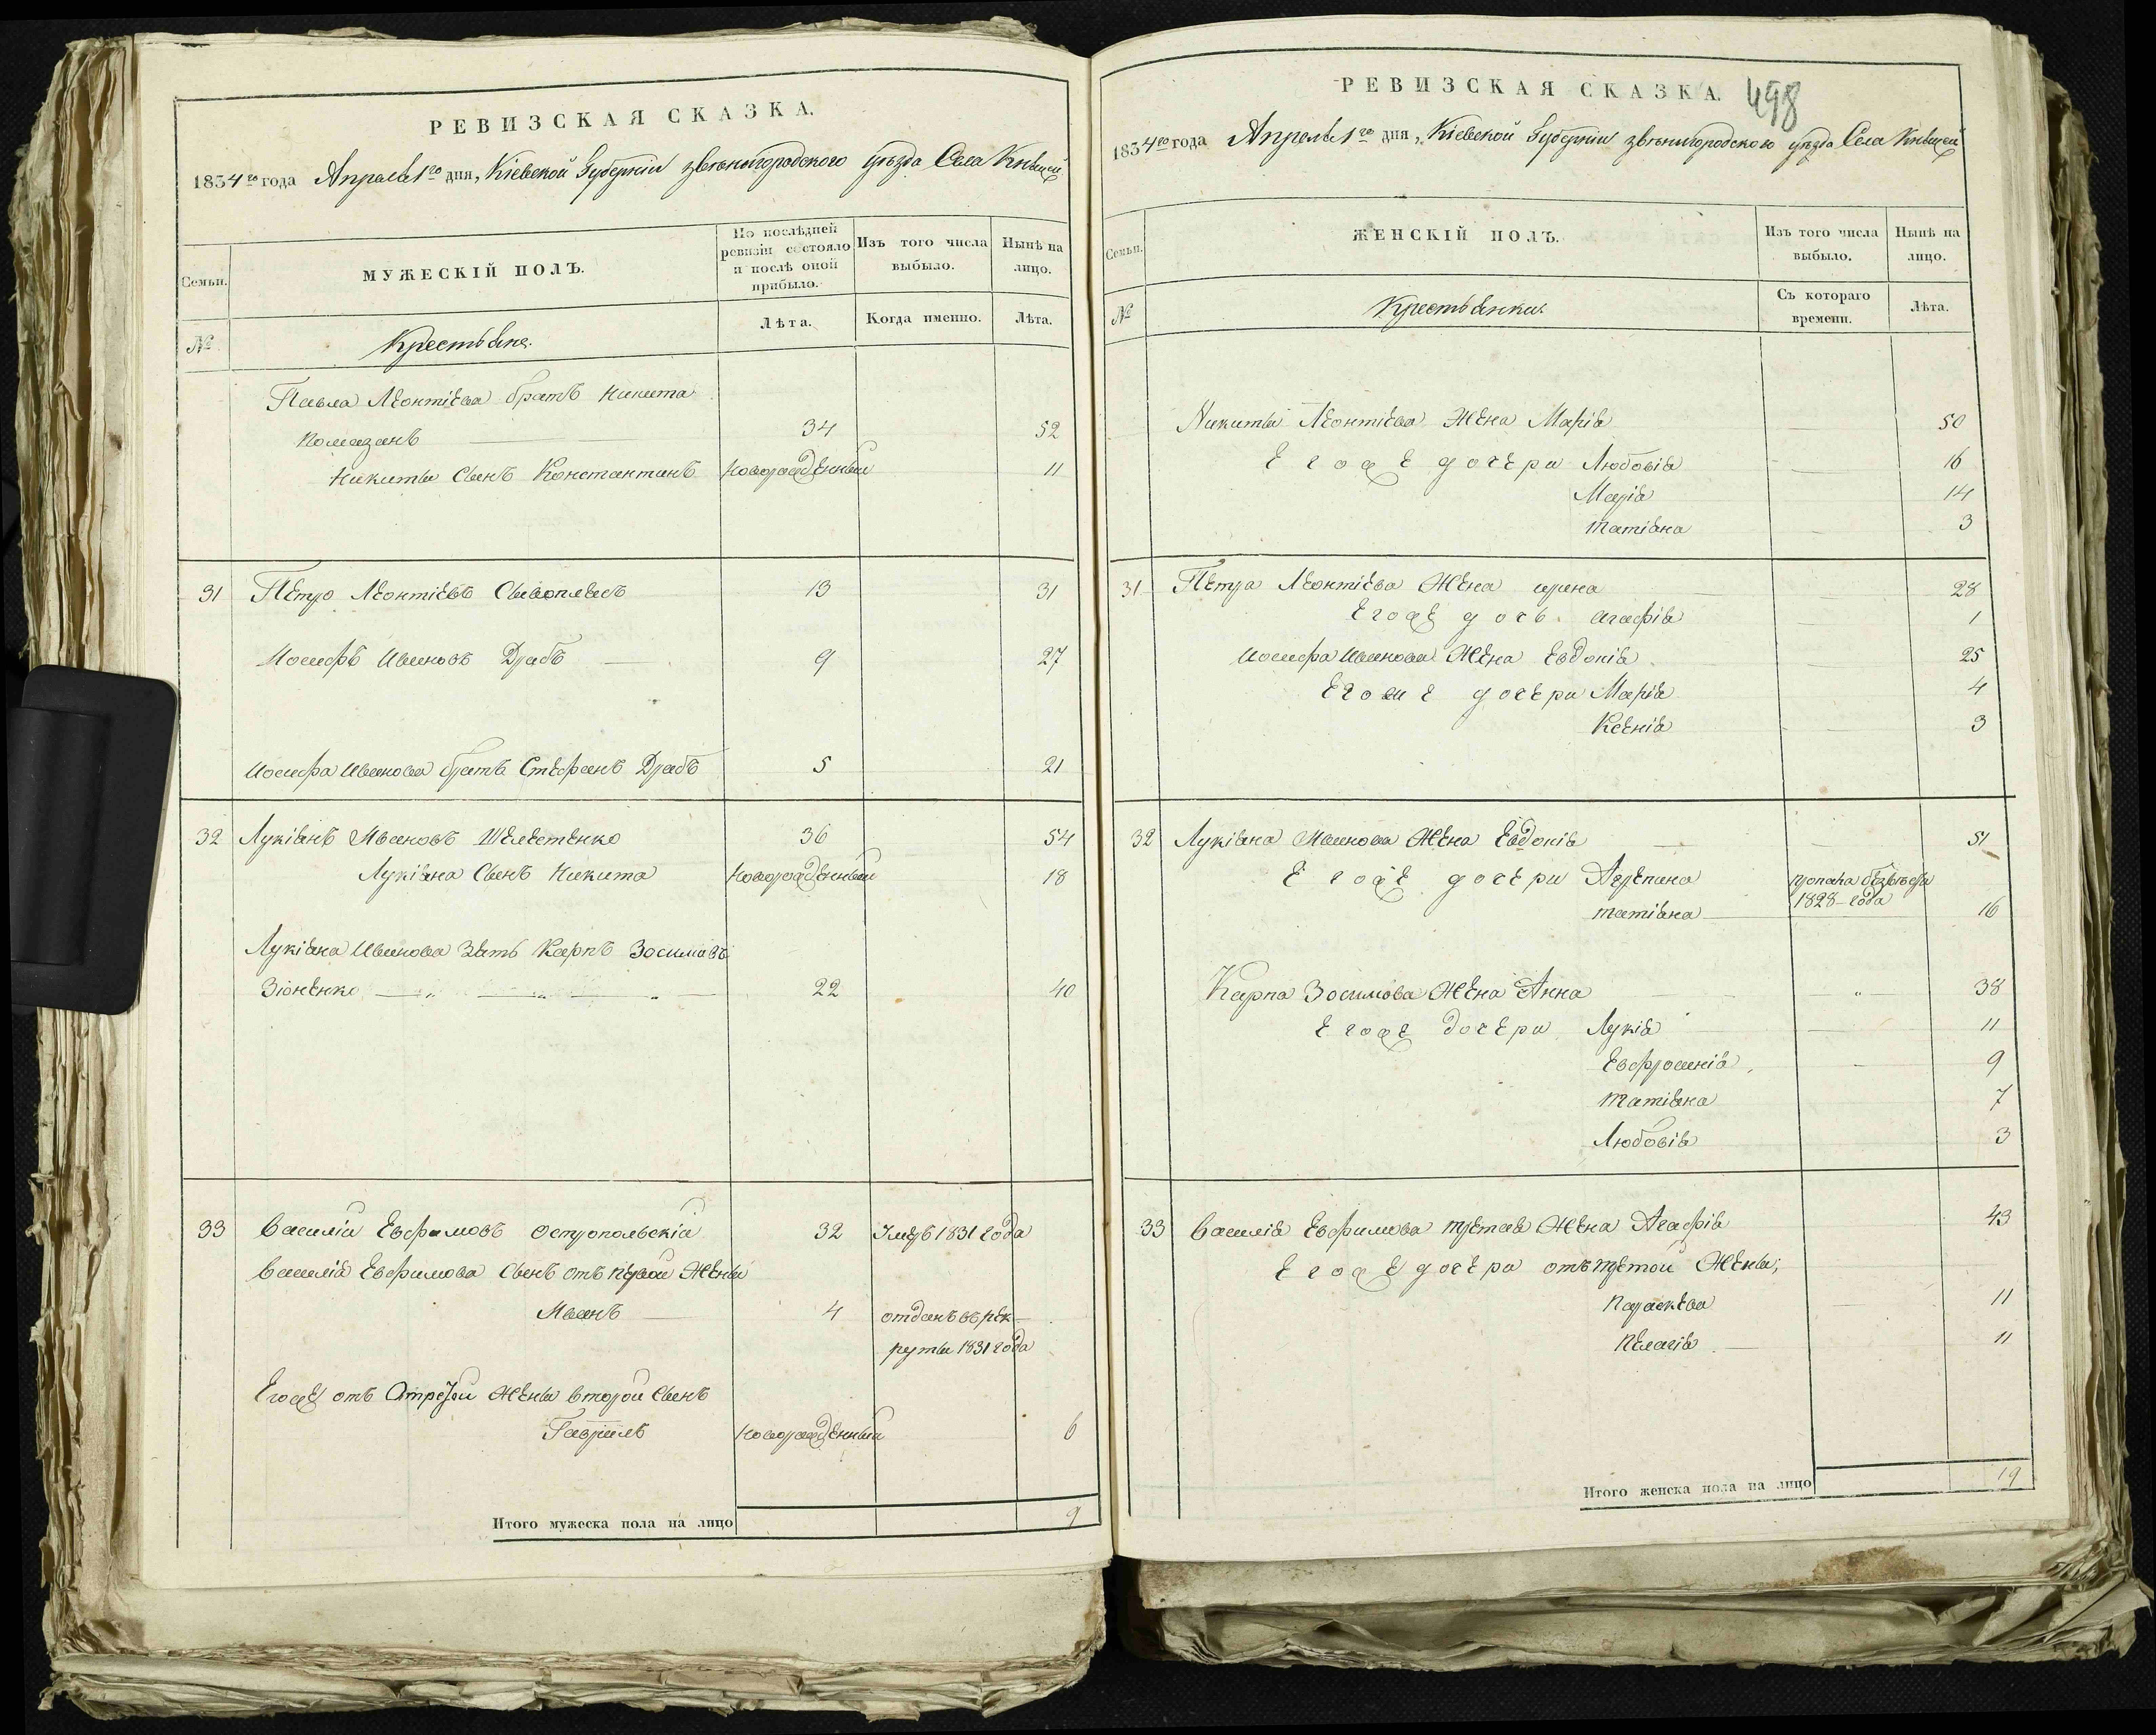 РЕВИЗСКАЯ СКАЗКА.
1834го года Апреля 1го дня, Кіевской Губерніи Звенигородского уѣзда Села
Семьи.
МУЖЕСКІЙ ПОЛЪ.
По послѣдней ревизіи состояло и послѣ оной прибыло.
Изъ того числа выбыло.
Нынѣ на лицо.
№
Крестьяне.
Лѣта.
Когда именно.
Лѣта.
Павла Леонтіева братъ Никита
Комазанъ 34 52
Никиты Сынъ Константинъ новорожденный 11
31 Петро Леонтіевъ 13 31
Иосифъ Ивановъ Драбъ 9 27
Иосифа Иванова братъ Стефанъ Драбъ 5 21
32 Лукіянъ Ивановъ Шелестенко 36 54
Лукіяна Сынъ Никита новорожденный 18
Лукіяна Иванова Зять Карпъ Зосимовъ
Зіоненко 22 40
33 Василій Евфимовъ Остропольскій 32 Умеръ 1831 года
Василія Евфимова Сынъ отъ первой Жены
Иванъ 4 отданъ въ рек-
руты 1831 года
Егоже отъ Жены второй Сынъ
Гаврилъ новорожденный 6
Итого мужеска пола на лицо 9
РЕВИЗСКАЯ СКАЗКА. 498
1834го года Апреля 1го дня, Кіевской Губерніи Звенигородского уѣзда Села
Семьи.
ЖЕНСКІЙ ПОЛЪ.
Изъ того числа выбыло.
Нынѣ на лицо.
№
Крестьянки.
Съ котораго времени.
Лѣта.
Никиты Леонтіева Жена Марія 50
Егоже дочери Любовія 16
Марія 14
Татіяна 3
31 Петра Леонтіева Жена ирина 28
Егоже дочь агафія 1
Иосифа Иванова Жена Евдокія 25
Егоже дочери Марія 4
Ксенія 3
32 Лукіяна Иванова Жена Евдокія 51
Егоже дочери Агрепина
1828 года
татіяна 16
Карпа Зосимова Жена Анна 38
Егоже дочери Лукія 11
Евфросинія 9
Татіяна 7
Любовія 3
33 Василія Евфимова третая Жена Агафія 43
Егоже дочери отъ третой Жены;
Параскева 11
Пелагія 11
Итого женска пола на лицо 19